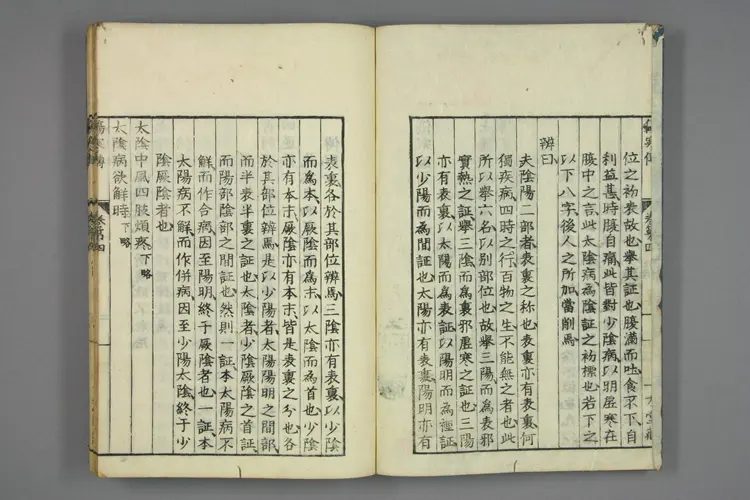 位之初表故也擧其証也腹滿而吐食不下自
利益甚時腹自痛此皆對少陰病以明虛寒在
腹中之言此太陰病為陰証之初標也若下之
以下八字後人之所加當削焉
辨曰
夫陰陽二部者表裏之称也表裏亦有表裏何
獨疾病四時之行百物之生不能無之者也此
所以擧六名以别部位也故擧三陽而為表邪
實熱之証擧三陰而為裏邪虛寒之証也三陽
亦有表裏以太陽而為表証以陽明而為裡証
以少陽而為間証也太陽亦有表裏陽明亦有
表裏各於其部位辨焉三陰亦有表裏以少陰
而為本以厥陰而為末以太陰而為首也少陰
亦有本末厥陰亦有本末皆是表裏之分也各
於其部位辨焉是以少陽者太陽陽明之間部
而半表半裏之証也太陰者少陰厥陰之首証
而陽部陰部之間証也然則一証本太陽病不
鮮而作合病因至陽明終于厥陰者也一証本
太陽病不鮮而作併病因至少陽太陰終于少
陰厥陰者也
太陰中風四肢煩疼下略
太陰病欲鮮時下略
傷寒傳
卷第四